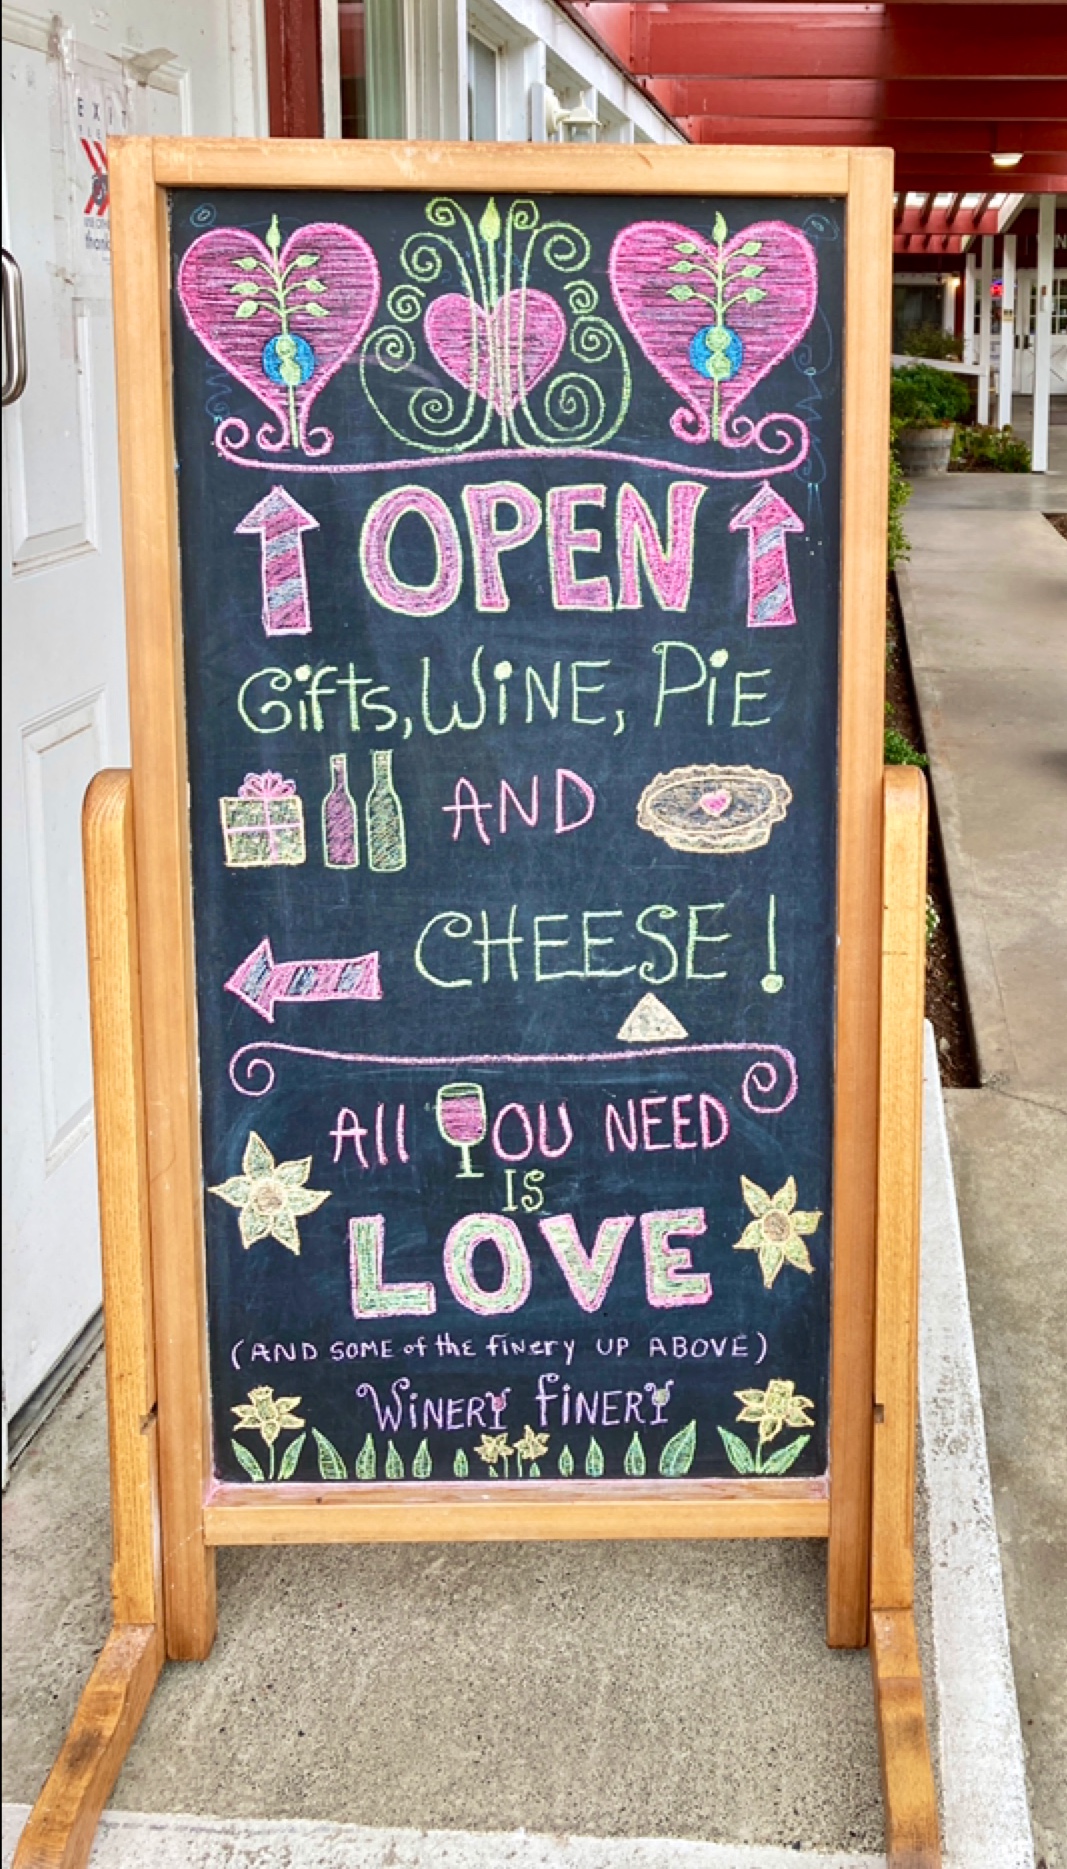 EXIT
thank
OPEN
Gifts, WiNE, PiE
AND
CHEESE!
All YOU NEED
IS
LOVE
(AND SOME of the finery UP ABOVE)
WiNERY fiNERY